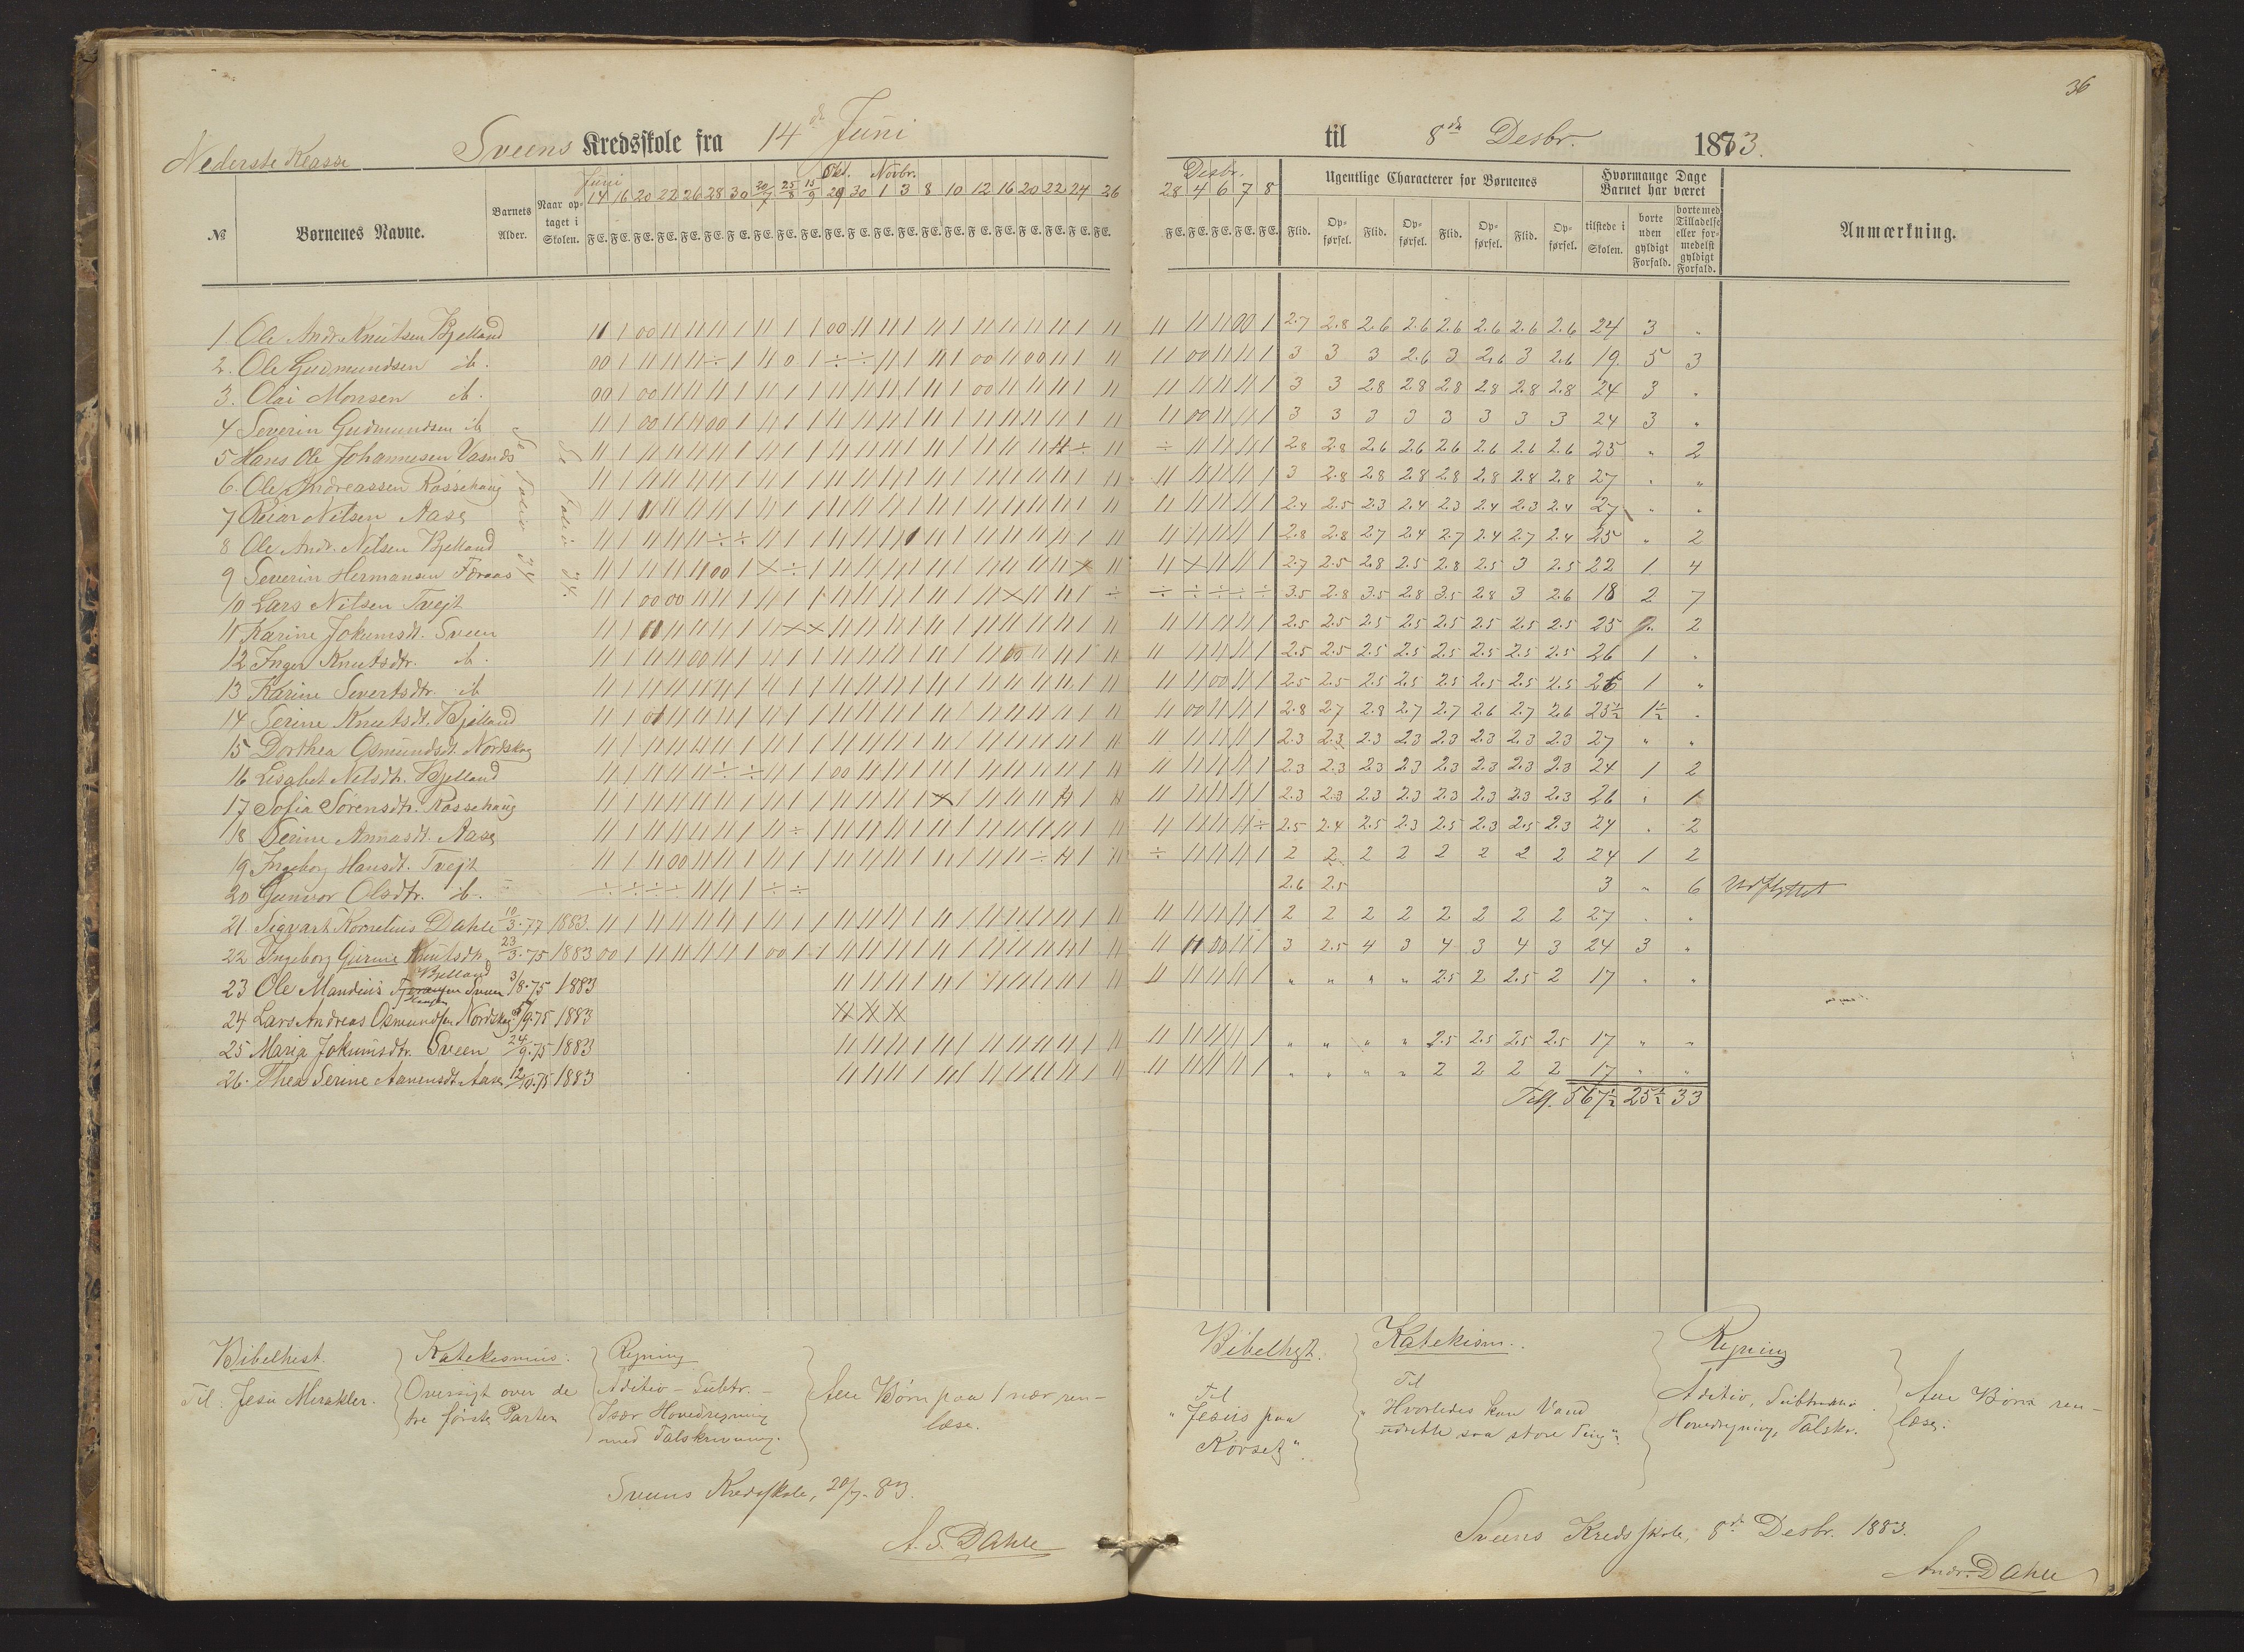 36
Nederste Klasse
Sveens Kredsskole fra 14de Juni til 8de Desbr. 1883.
Juni Okt. Novbr. Desbr.
14 16 20 22 26 28 30 20/7 25/8 15/9 29 30 1 3 8 10 12 16 20 22 24 26 28 4 6 7 8
№ Børnenes Navne. Barnets Alder. Naar optaget i Skolen. F E. Ugentlige Characterer for Børnenes Hvormange Dage Barnet har været Anmærkning.
Flid. Opførsel. Flid. Opførsel. Flid. Opførsel. Flid. Opførsel. tilstede i Skolen. borte uden gyldigt Forfald. borte med Tilladelse eller formedelst gyldigt Forfald.
Se Folio 34
Se Folio 34.
1 Ole Andr. Knutsen Bjelland 2.7 2.8 2.6 2.6 2.6 2.6 2.6 2.6 24 3 "
2. Ole Gudmundsen ib. 3 3 3 2.6 3 2.6 3 2.6 19. 5 3
3. Olai Monsen ib. 3 3 2.8 2.8 2.8 2.8 2.8 2.8 24 3 "
4 Severin Gudmundsen ib 3 3 3 3 3 3 3 3 24 3 "
5 Hans Ole Johannesen Vasnds 2.8 2.8 2.6 2.6 2.6 2.6 2.6 2.6 25 " 2
6. Ole Andreassen Rossehaug 3 2.8 2.8 2.8 2.8 2.8 2.8 2.8 27 " "
7 Reiar Nilsen Aase 2.4 2.5 2.3 2.4 2.3 2.4 2.3 2.4 27 " "
8 Ole Andr. Nilsen Bjelland 2.8 2.8 2.7 2.4 2.7 2.4 2.7 2.4 25 " 2
9 Severin Hermansen Foraas 2.7 2.5 2.8 2.5 2.8 2.5 3 2.5 22 1 4
10 Lars Nilsen Tvejt 3.5 2.8 3.5 2.8 3.5 2.8 3 2.6 18 2 7
11 Karine Jokumsdt. Sveen 2.5 2.5 2.5 2.5 2.5 2.5 2.5 2.5 25 2
12 Inger Knutsdtr. ib. 2.5 2.5 2.5 2.5 2.5 2.5 2.5 2.5 26 1 "
13 Karine Sivertsdtr. ib 2.5 2.5 2.5 2.5 2.5 2.5 2.5 2.5 26 1 "
14 Serine Knutsdt. Bjelland 2.8 2.7 2.8 2.7 2.7 2.6 2.7 2.6 25½ 1½ "
15 Dorthea Osmundsdt. Nordskog 2.3 2.3 2.3 2.3 2.3 2.3 2.3 2.3 27 " "
16 Lisabet Nilsdtr. Bjelland 2.3 2.3 2.3 2.3 2.3 2.3 2.3 2.3 24 1 2
17 Sofia Sørensdtr. Rossehaug 2.3 2.3 2.3 2.3 2.3 2.3 2.3 2.3 26 " 1
18 Serine Annasdt. Aase 2.5 2.4 2.5 2.3 2.5 2.3 2.5 2.3 24 " 2
19 Ingeborg Hansdt. Tvejt 2 2 2 2 2 2 2 2 24 1 2
20 Gunvor Olsdtr. ib. 2.6 2.5 3 " 6 Udflyttet
21 Sigvart Kornelius Dahle 10/3.77 1883. 2 2 2 2 2 2 2 2 27 " "
22 Ingeborg Gurine Knutsdtr. Bjelland 23/3.75 1883 3 2.5 4 3 4 3 4 3 24 3 "
23 Ole Mandius Sveen 3/8.75 1883 " " " " 2.5 2 2.5 2 17 " "
24 Lars Andreas Osmundsen Nordskog /9.75 1883
25 Maria Jokumsdtr. Sveen 24/9.75 1883 " " " " 2.5 2.5 2.5 2.5 17 " "
26. Thea Serine Aanensdt. Aase 12/10.75 1883 " " " " 2 2 2 2 17 " "
567½ 25½ 33
Bibelhist.
Til: Jesu Mirakler.
Katekismus.
Oversigt over de
tre første Parter
Regning
Aditio – Subtr. –
Især Hovedregning
med Talskrivning.
Alle Børn paa 1 nær ren-
læse.
Sveens Kredsskole, 20/7. 83.
A. S. Dahle
Bibelhist.
Til
"Jesus paa
Korset".
Katekism.
Til
"Hvorledes kan Vand
udrette saa store Ting".
Regning
Aditio, Subtraktio
Hovedregning, Talskr.
Alle Børn ren-
læse.
Sveens Kredsskole, 8de Desbr. 1883.
Andr. Dahle